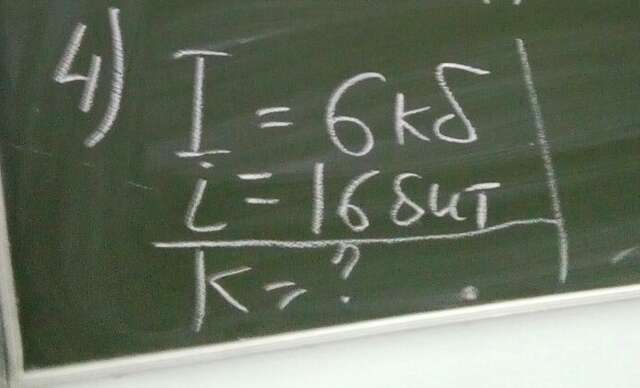 4) I = 6 кб
i = 16 бит
K = ?